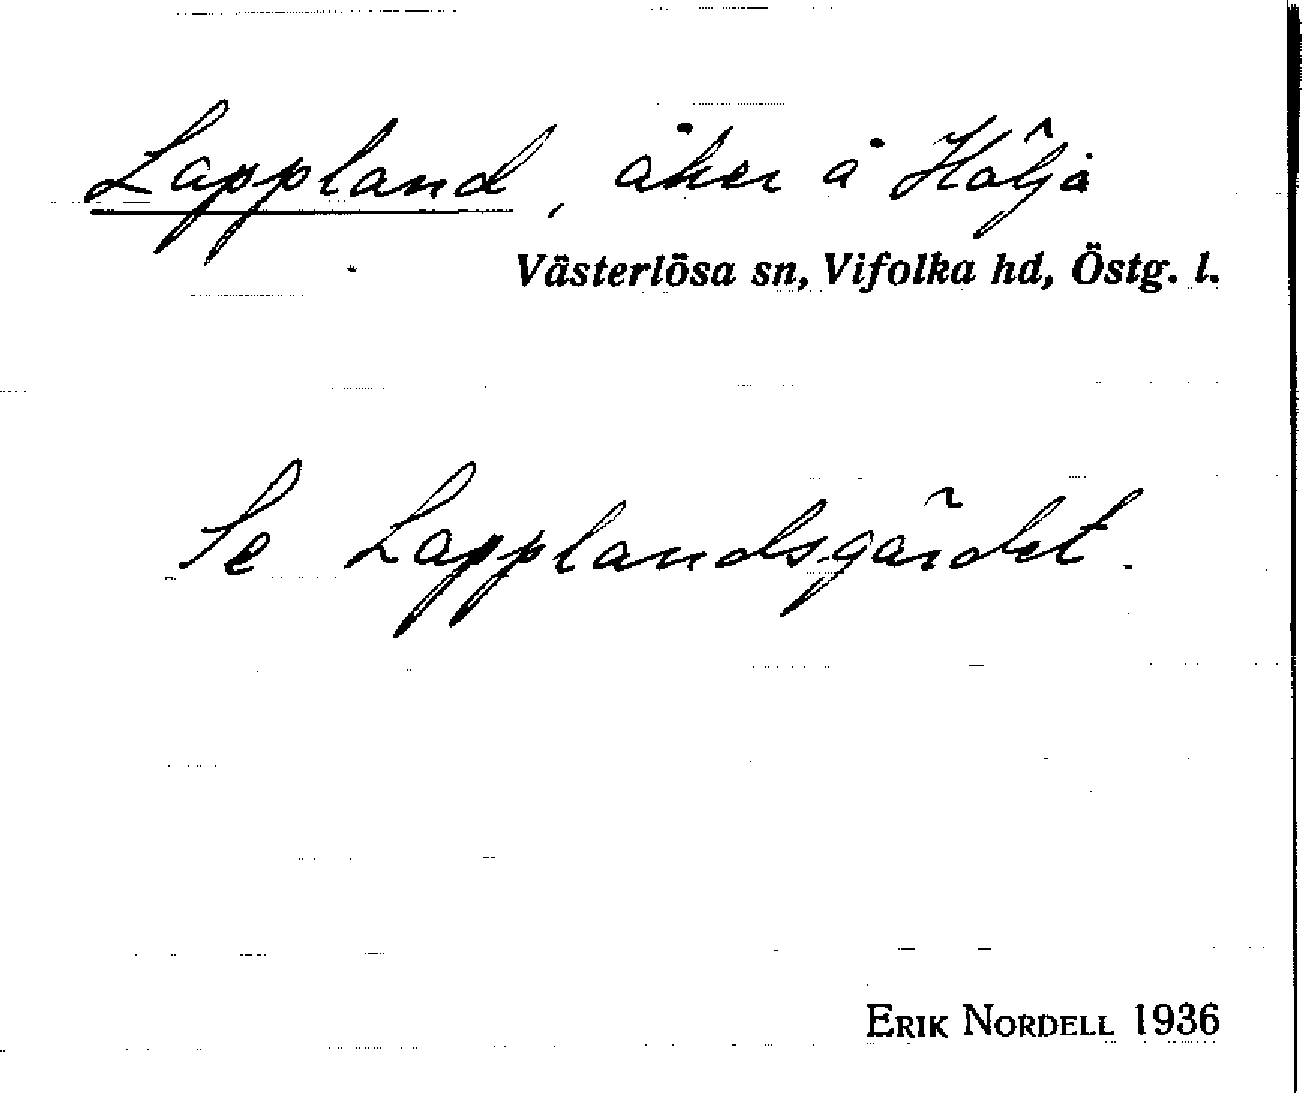 Lappland, åker å Hölja
Västerlösa sn, Vifolka hd, Östg. l.
Se Lapplandsgärdet.
ERIK NORDELL 1936